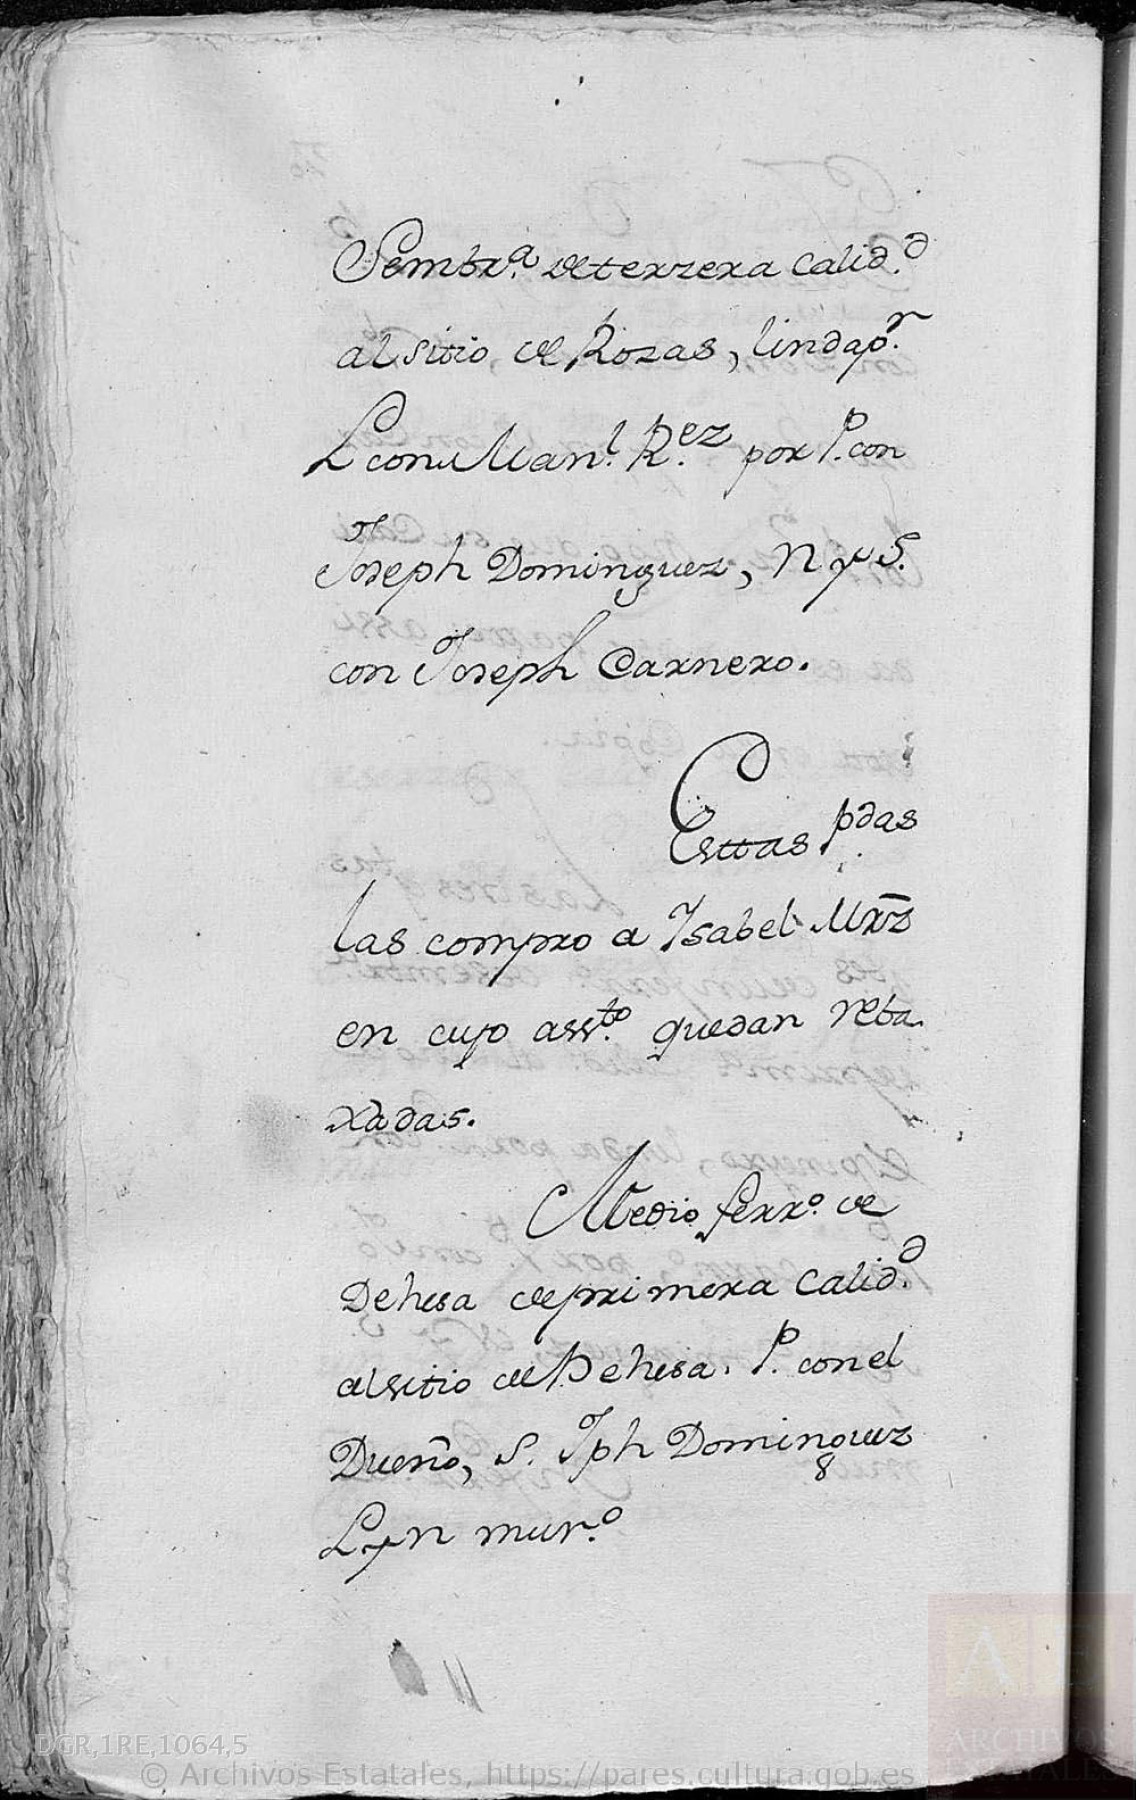 Sembr.ª de terzera Calid.ᵈ
al sitio de Rozas, linda p.ʳ
L con Man.ˡ R.ᵉᶻ por P. con
Joseph Dominguez, N y S.
con Joseph Carnero.
Esttas p.ᵈᵃˢ
las compro a Ysabel Mrz̄
en cuyo ass.ᵗᵒ quedan reba
xadas.
Medio ferr.º de
Dehesa de primera Calid.ᵈ
al sitio de Dehesa. P. con el
Dueño, S. Jph Dominguez
L y N mur.º
DGR,1RE,1064,5
© Archivos Estatales, https://pares.cultura.gob.es
AE
ARCHIVOS
ESTATALES